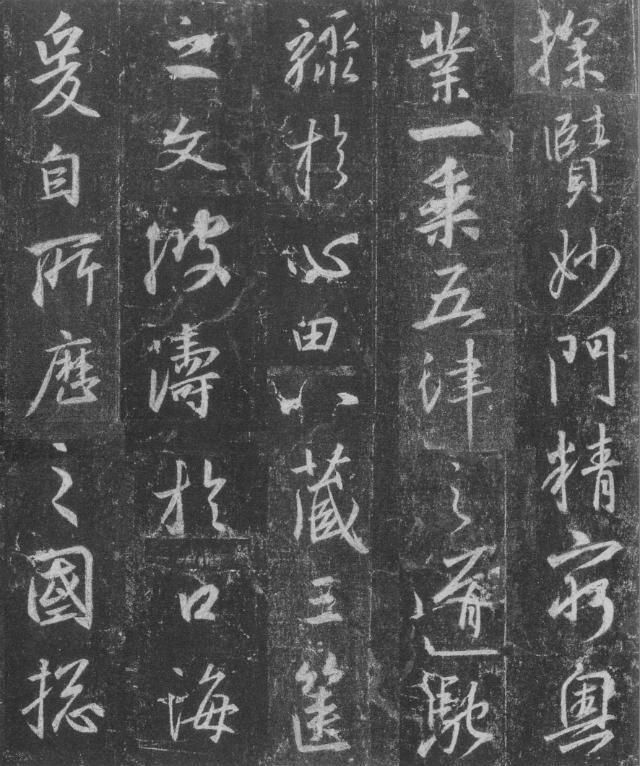 探賾妙門精窮奧
業一乘五律之道馳
驟於心田八藏三篋
之文波濤於口海
爰自所歷之國揔